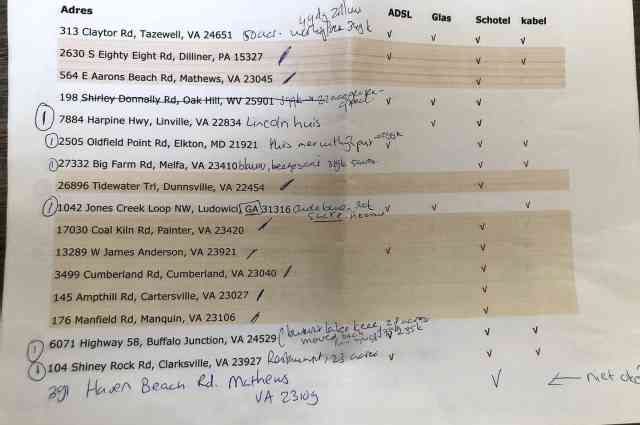 Adres ADSL Glas Schotel kabel
313 Claytor Rd, Tazewell, VA 24651 50 acres v v v v
2630 S Eighty Eight Rd, Dilliner, PA 15327 v v v
564 E Aarons Beach Rd, Mathews, VA 23045 v
198 Shirley Donnally Rd, Oak Hill, WV 25901 v v v
7884 Harpine Hwy, Linville, VA 22834 Lincoln huis v v
2505 Oldfield Point Rd, Elkton, MD 21921 Huis met v v v
27332 Big Farm Rd, Melfa, VA 23410 v v v
26896 Tidewater Trl, Dunnsville, VA 22454 v
1042 Jones Creek Loop NW, Ludowici, GA 31316 v v v
17030 Coal Kiln Rd, Painter, VA 23420 v
13289 W James Anderson, VA 23921 v v
3499 Cumberland Rd, Cumberland, VA 23040 v
145 Ampthill Rd, Cartersville, VA 23027 v
176 Manfield Rd, Manquin, VA 23106 v
6071 Highway 58, Buffalo Junction, VA 24529 v v
104 Shiney Rock Rd, Clarksville, VA 23927 Restaurant, 23 acres v v v
391 Haven Beach Rd. Mathews v
VA 23109